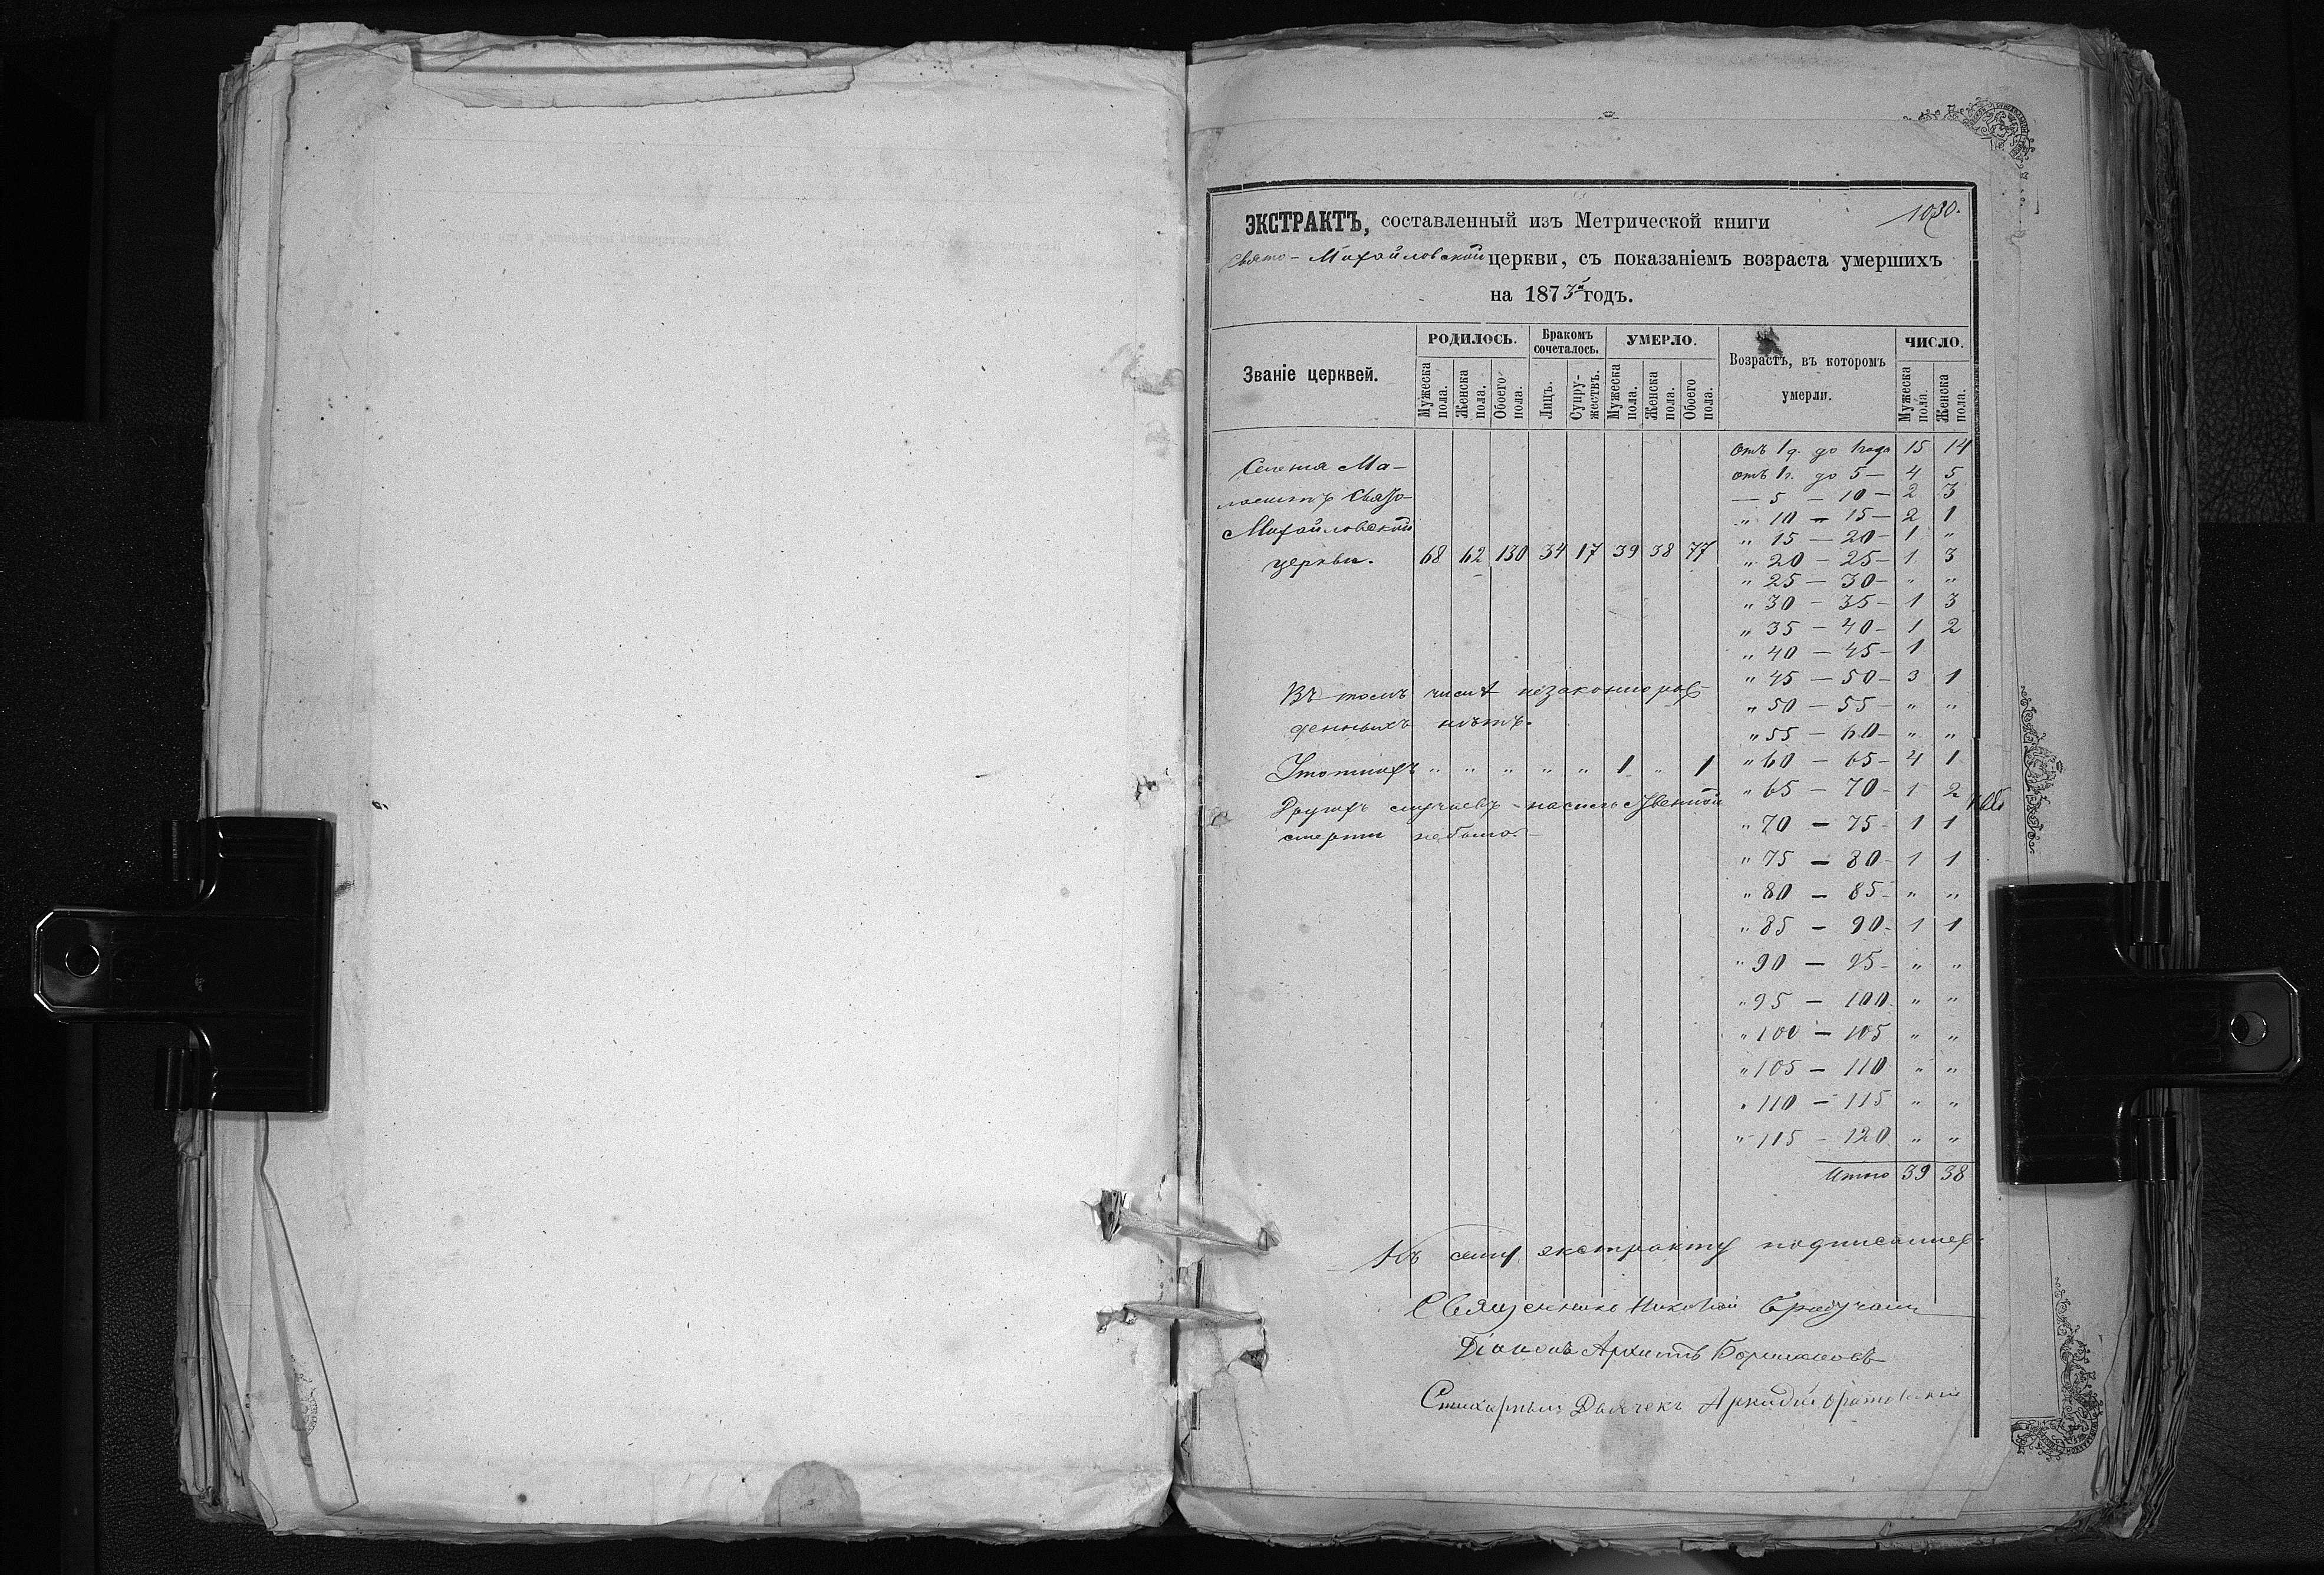 1030.
ЭКСТРАКТЪ, составленный изъ Метрической книги
Свято-Михайловской церкви, съ показаніемъ возраста умершихъ
на 1873й годъ.
Званіе церквей.
РОДИЛОСЬ.
Мужеска пола.
Женска пола.
Обоего пола.
Бракомъ сочеталось.
Лицъ.
Супружествъ.
УМЕРЛО.
Мужеска пола.
Женска пола.
Обоего пола.
Возрастъ, въ которомъ
умерли.
ЧИСЛО.
Мужеска пола.
Женска пола.
Селенія Ма-
Свято-
Михайловской
церкви. 68 62 130 34 17 39 38 77
Въ томъ числѣ незаконнорож-
денныхъ нѣтъ.
" " " " " 1 " 1
Другихъ случаевъ насильственной
смерти небыло.
отъ 1 д. до 1 года 15 14
отъ 1 г. до 5 — 4 5
— 5 — 10 — 2 3
" 10 — 15 — 2 1
" 15 — 20 — 1 "
" 20 — 25 — 1 3
" 25 — 30 — " "
" 30 — 35 — 1 3
" 35 — 40 — 1 2
" 40 — 45 — 1
" 45 — 50 — 3 1
" 50 — 55 — " "
" 55 — 60 — " "
" 60 — 65 — 4 1
" 65 — 70 — 1 2
" 70 — 75 — 1 1
" 75 — 80 — 1 1
" 80 — 85 — " "
" 85 — 90 — 1 1
" 90 — 95 — " "
" 95 — 100 " "
" 100 — 105 " "
" 105 — 110 " "
" 110 — 115 " "
" 115 — 120 " "
Итого 39 38
Къ сему экстракту
Священникъ Николай
Діаконъ
Стихарный Дьячекъ Аркадій